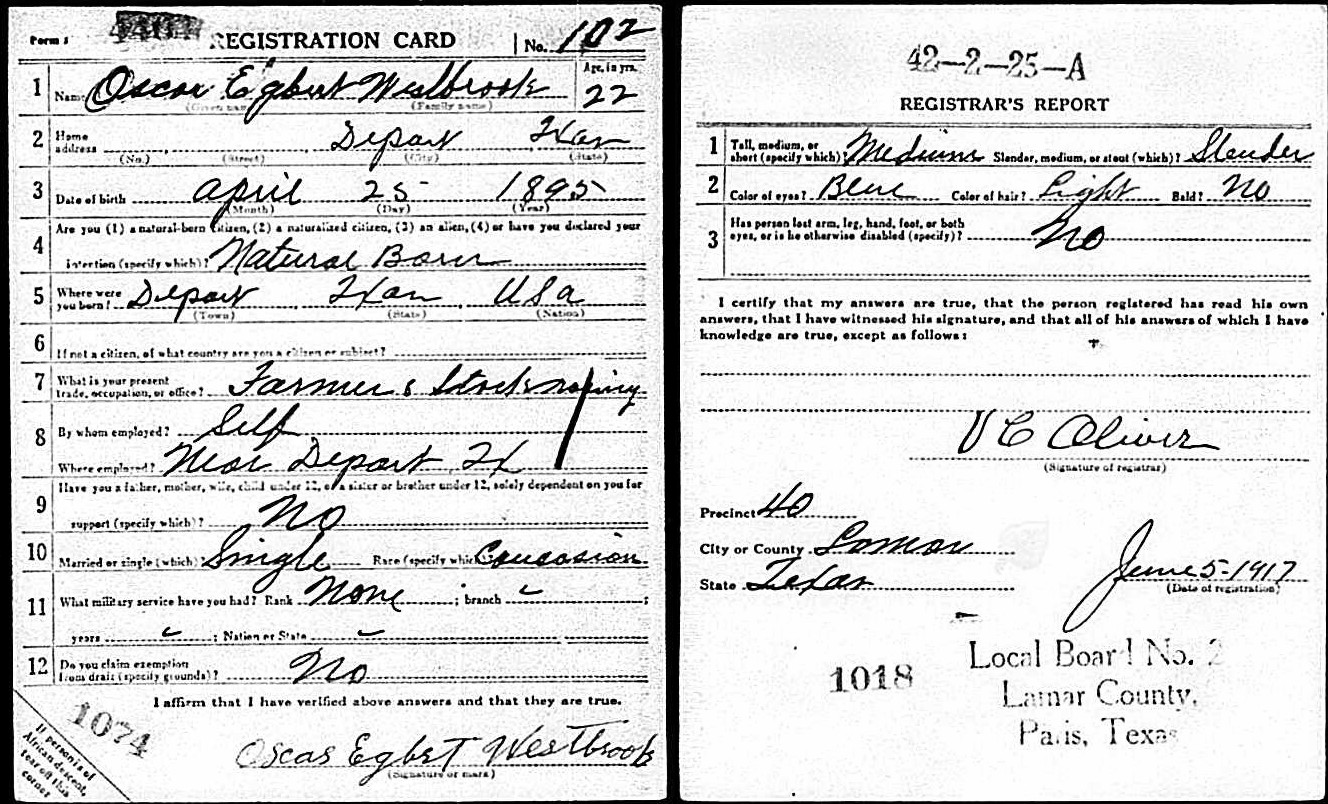 Form 1 4401 REGISTRATION CARD No. 102
1 Name Oscar Egbert Westbrook Age, in yrs. 22
(Given name) (Family name)
2 Home address Deport Texas
(No.) (Street) (City) (State)
3 Date of birth April 25 1895
(Month) (Day) (Year)
4 Are you (1) a natural-born citizen, (2) a naturalized citizen, (3) an alien, (4) or have you declared your
intention (specify which)? Natural Born
5 Where were you born? Deport Texas USA
(Town) (State) (Nation)
6 If not a citizen, of what country are you a citizen or subject?
7 What is your present trade, occupation, or office? Farmer & Stock
8 By whom employed? Self
Where employed? Near Deport, Tx
9 Have you a father, mother, wife, child under 12, or a sister or brother under 12, solely dependent on you for
support (specify which)? No
10 Married or single (which)? Single Race (specify which)? Caucasian
11 What military service have you had? Rank None ; branch - ;
years - ; Nation or State -
12 Do you claim exemption from draft (specify grounds)? No
I affirm that I have verified above answers and that they are true.
1074
Oscar Egbert Westbrook
(Signature or mark)
If person is of
African descent,
tear off this
corner
42-2-25-A
REGISTRAR'S REPORT
1 Tall, medium, or short (specify which)? Medium Slender, medium, or stout (which)? Slender
2 Color of eyes? Blue Color of hair? Light Bald? No
3 Has person lost arm, leg, hand, foot, or both eyes, or is he otherwise disabled (specify)? No
I certify that my answers are true, that the person registered has read his own
answers, that I have witnessed his signature, and that all of his answers of which I have
knowledge are true, except as follows:
V C Oliver
(Signature of registrar)
Precinct 40
City or County Lamar
State Texas
June 5-1917
(Date of registration)
1018
Local Board No. 2
Lamar County,
Paris, Texas